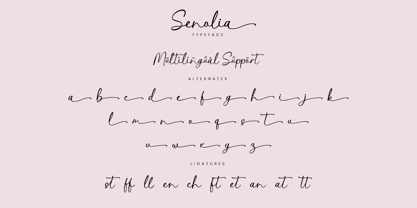 Senolia
TYPEFACE
Mültilingüál Süppört
ALTERNATES
a b c d e f g h i j k
l m n o q s t u
v w x y z
LIGATURES
st ff ll en ch ft et an at tt